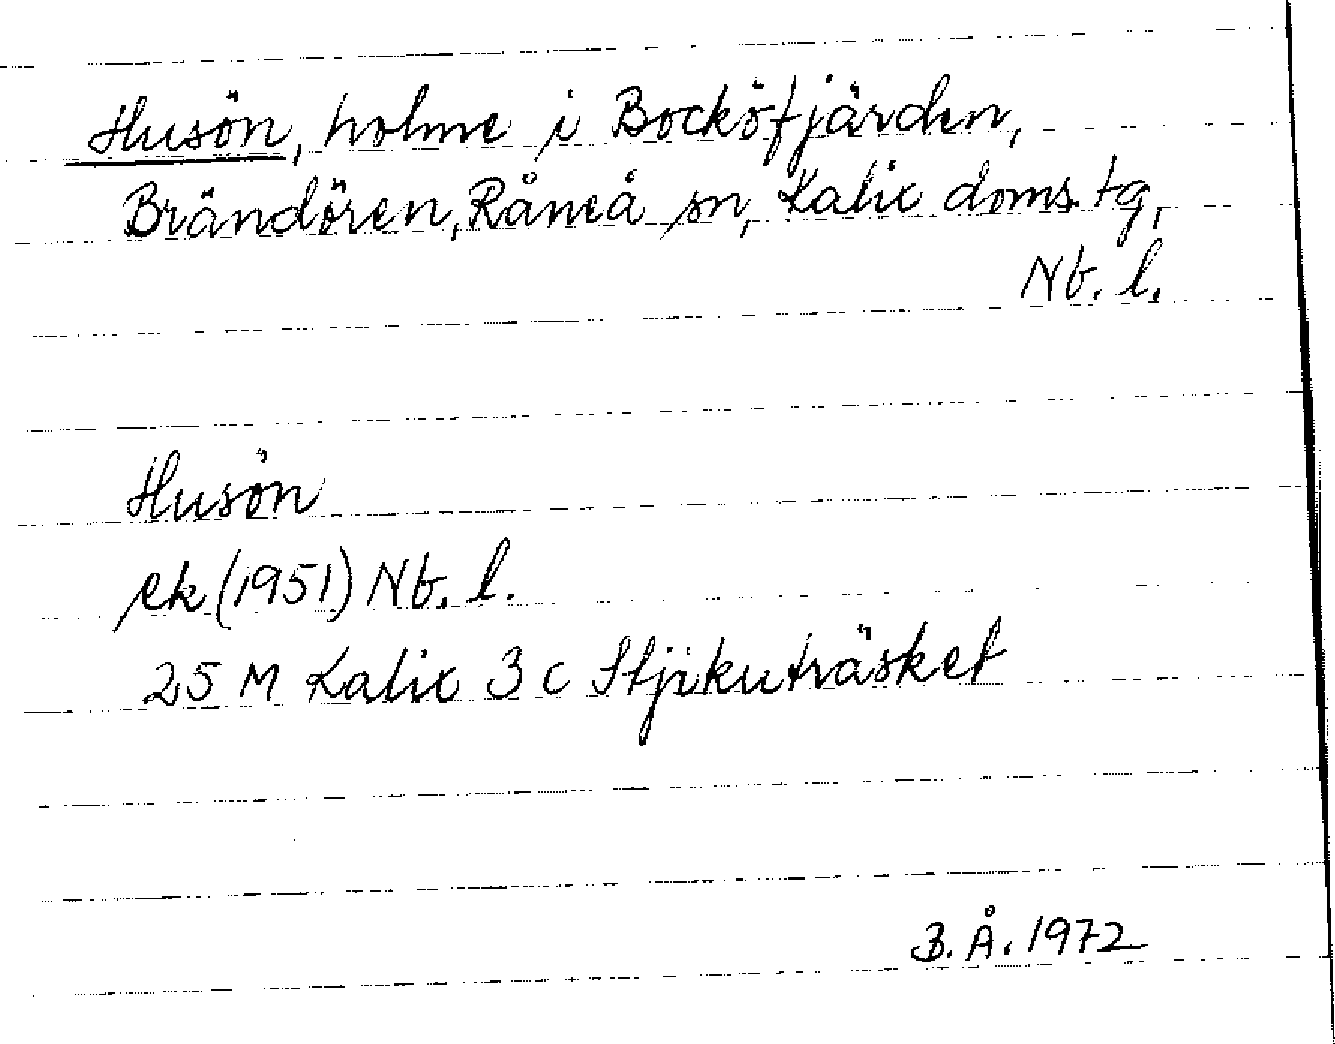 Husön, holme i Bocköfjärden,
Brändören, Råneå sn, Kalix doms. tg,
Nb. l.
Husön
ek (1951) Nb. l.
25 M Kalix 3 c Stjikuträsket
B. Å. 1972